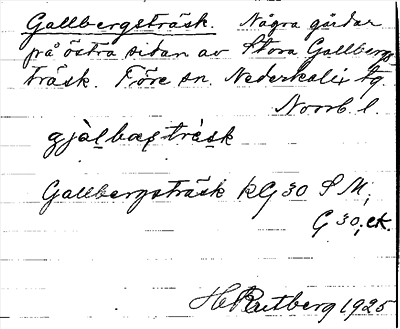 Gallbergsträsk. Några gårdar
på östra sidan av Stora Gallbergs
träsk. Töre sn. Nederkalix tg.
Norrb. l.
gjàlbæs̨très̨k
Gallbergsträsk kG 30 S M;
G 30; ek.
H Rautberg 1925